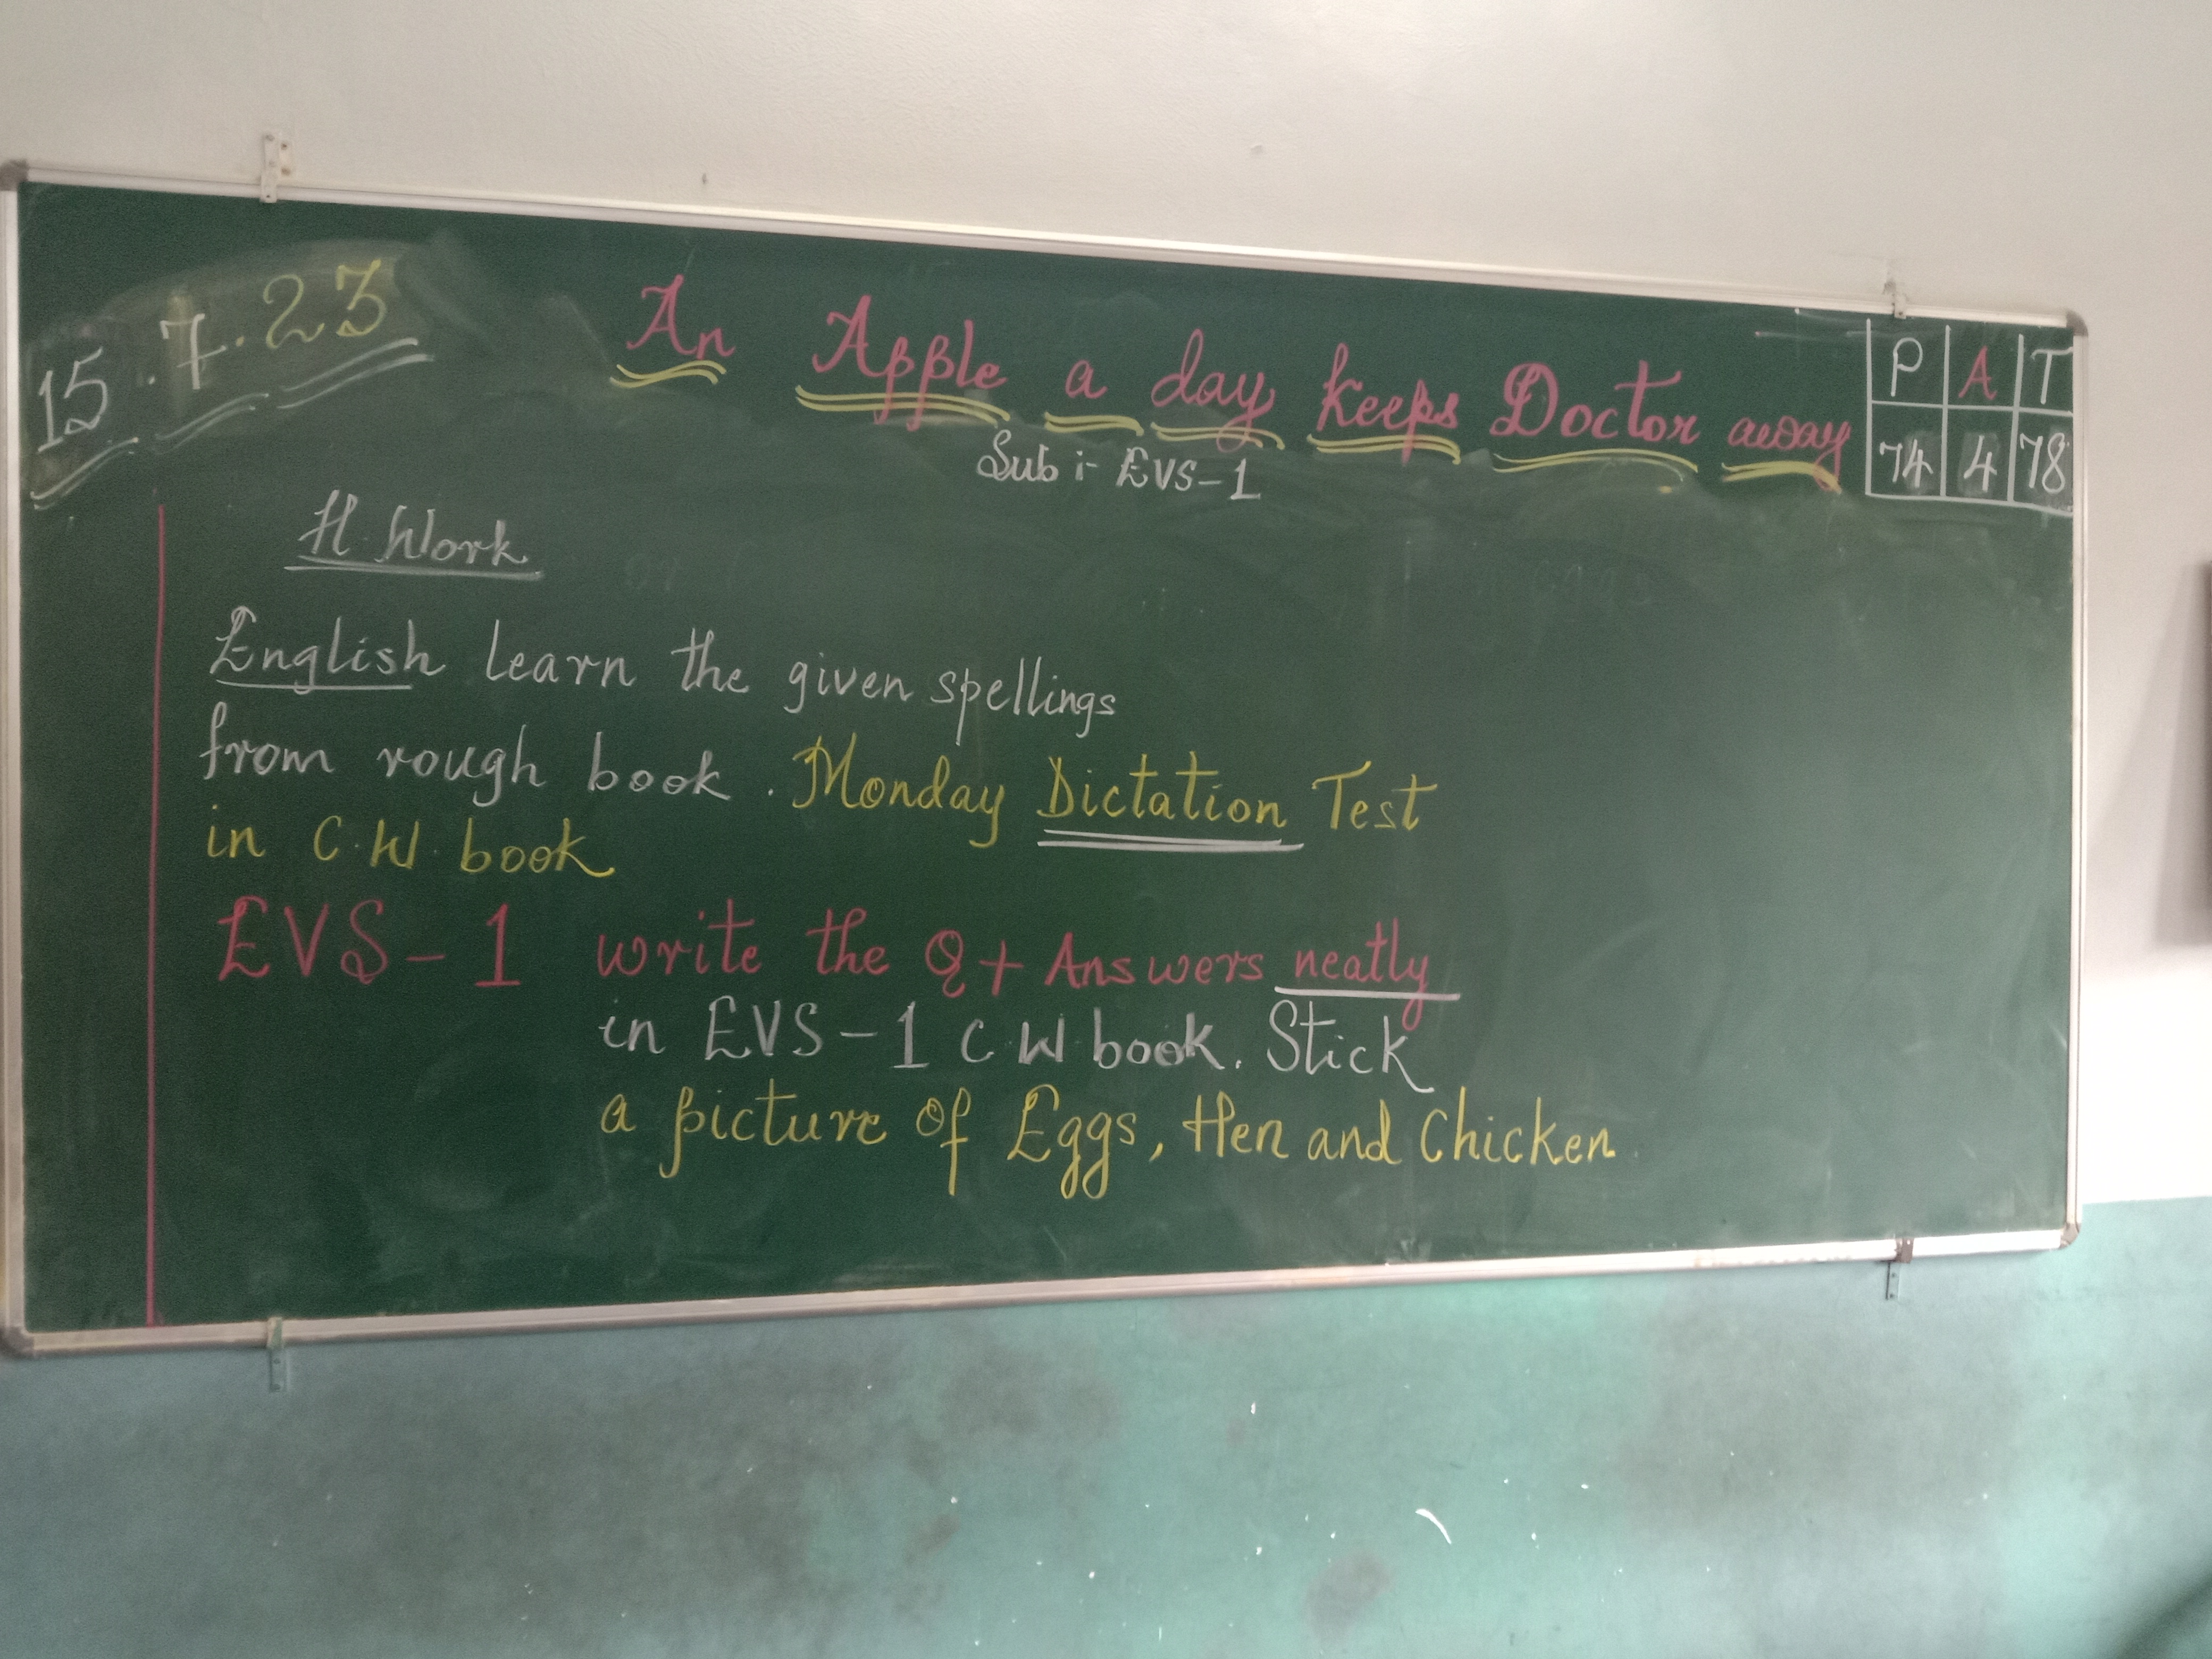 15.7.23
An Apple a day keeps Doctor away
P A T
74 4 78
Sub :- EVS-1
H.Work
English learn the given spellings
from rough book. Monday Dictation Test
in C.W. book
EVS-1 write the Q + Answers neatly
in EVS-1 C.W book. Stick
a picture of Eggs, Hen and Chicken